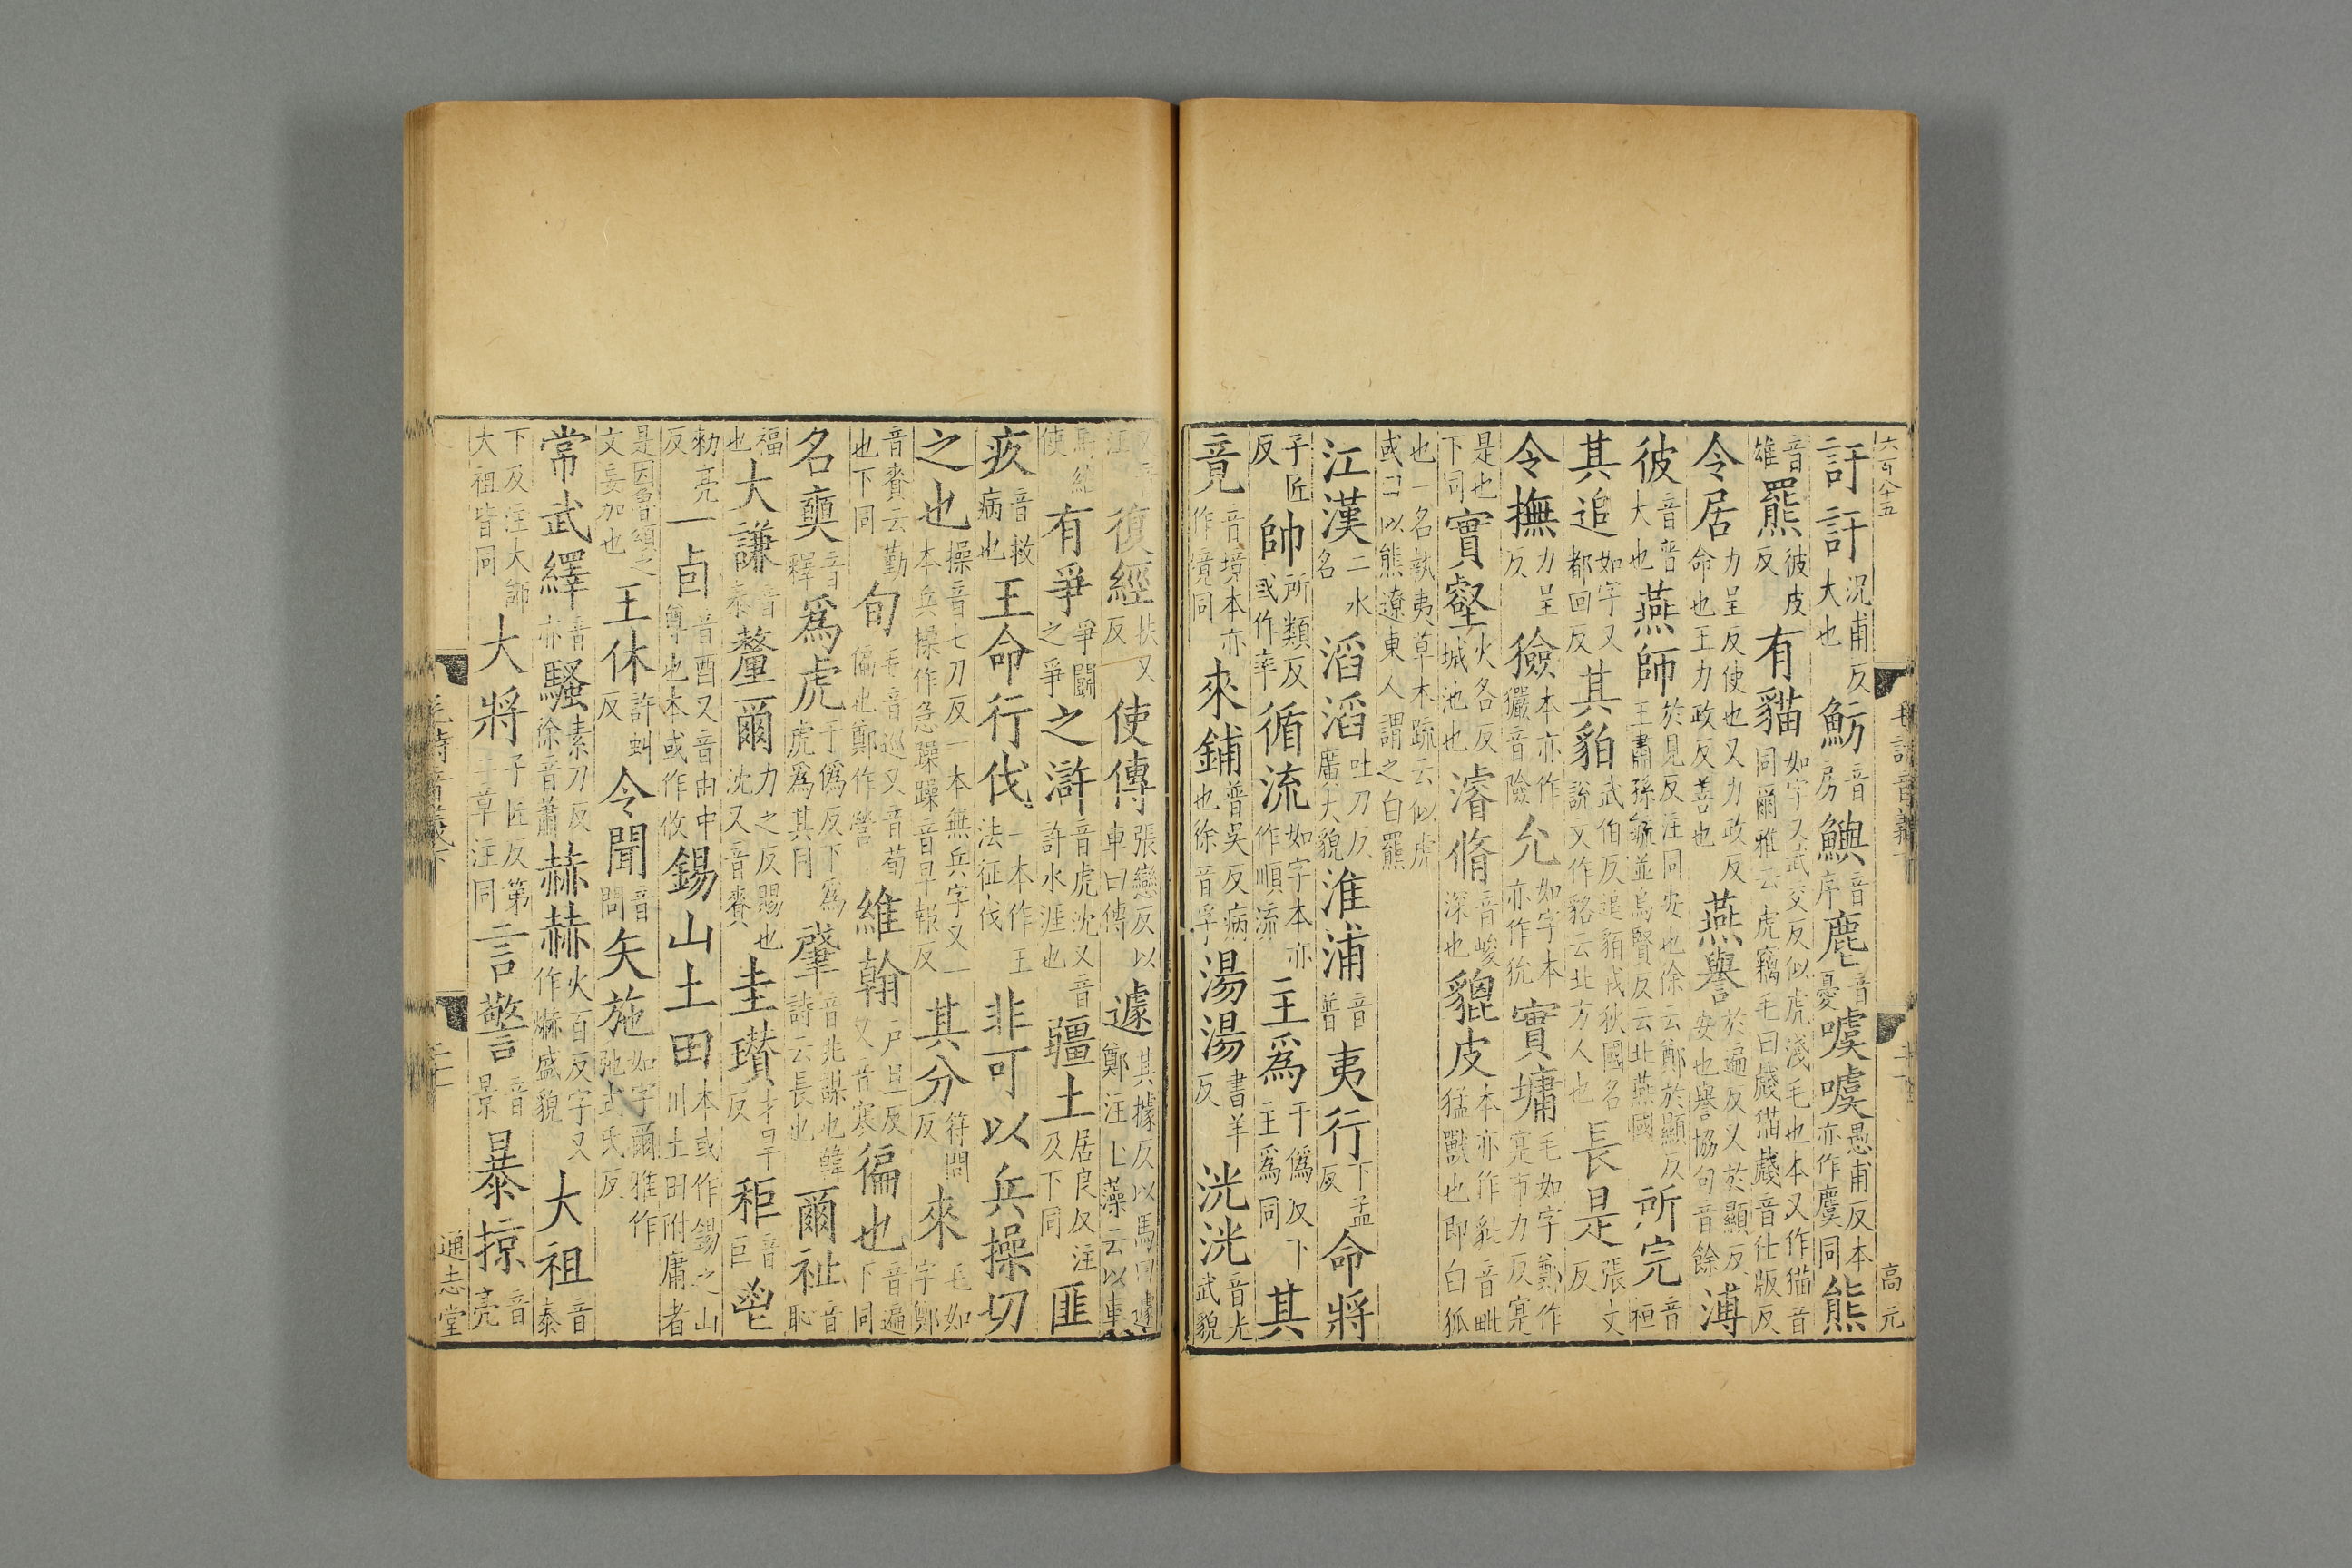 六百八十五
訏訏況甫反大也魴音房鱮音序麀音憂噳噳愚甫反本亦作麌同熊
音雄羆彼皮反有貓如字又武交反似虎淺毛也本又作猫音同爾雅云虎竊毛曰虥猫虥音仕版反
令居力呈反使也又力政反命也王力政反善也燕譽於遍反又於顯反安也譽協句音餘溥
彼音普大也燕師於見反注同安也徐云鄭於顯反王肅孫毓並烏賢反云北燕國所完音桓
其追如字又都回反其貊武伯反追貊戎狄國名說文作貉云北方人也長是張丈反
令撫力呈反獫本亦作玁音險允如字本亦作狁實墉毛如字鄭作寔市力反寔
是也下同實壑火各反城池也濬脩音峻深也貔皮本亦作豼音毗猛獸也即白狐
也一名執夷草木疏云似虎或曰以熊遼東人謂之白羆
江漢二水名滔滔吐刀反廣大貌淮浦音普夷行下孟反命將
子匠反帥所類反或作率循流如字本亦作順流主爲于僞反下主爲同其
竟音境本亦作境同來鋪普吳反病也徐音孚湯湯書羊反洸洸音光武貌
毛詩音義下
高元
復經扶又反使傳張戀反以車曰傳遽其據反以馬曰遽鄭注玉藻云以車
馬給使有爭爭鬬之爭之滸音虎沈又音許水涯也疆土居良反注及下同匪
疚音救病也王命行伐一本作王法征伐非可以兵操切
之也操音七刀反一本無兵字又一本兵操作急躁躁音早報反其分符問反來毛如字鄭
音賚云勤也下同旬毛音巡又音荀徧也鄭作營維翰戶旦反又音寒徧也音遍下同
名奭音釋爲虎于僞反下爲虎爲其同肇音兆謀也韓詩云長也爾祉音恥
福也大謙音泰釐爾力之反賜也沈又音賚圭瓚才旱反秬音巨鬯
勑亮反一卣音酉又音由中尊也本或作攸錫山土田本或作錫之山川土田附庸者
是因魯頌之文妄加也王休許虯反令聞音問矢施如字爾雅作弛式氏反
常武繹音亦騷素刀反徐音蕭赫赫火百反字又作爀盛貌大祖音泰
下反注大師大祖皆同大將子匠反第三章注同言警音景暴掠音亮
毛詩音義下
通志堂